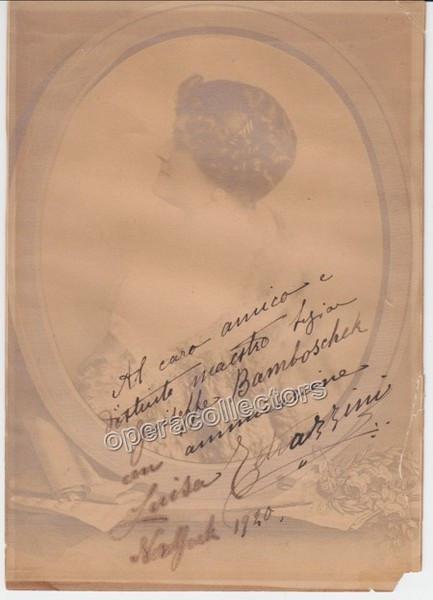 Al caro amico e
distinto maestro
Giuseppe Bamboschek
operacollectors
con ammirazione
Luisa Tetrazzini
1920.